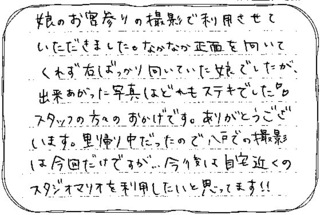 娘のお宮参りの撮影で利用させて
いただきました。なかなか正面を向いて
くれず右ばっかり向いていた娘でしたが、
出来あがった写真はどれもステキでした。
スタッフの方々のおかげです。ありがとうござ
います。里帰り中だったので八戸での撮影
は今回だけでるが…今後は自宅近くの
スタジオマリオを利用したいと思ってます!!